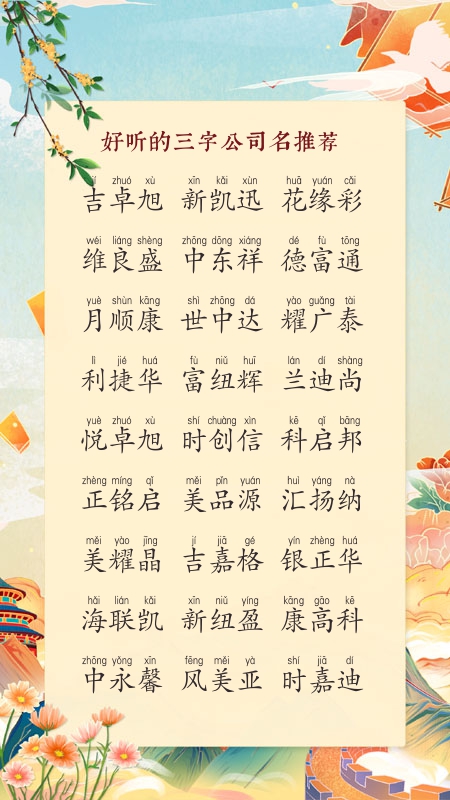 好听的三字公司名推荐
jí zhuó xù xīn kǎi xùn huā yuán cǎi
吉卓旭 新凯迅 花缘彩
wéi liáng shèng zhōng dōng xiáng dé fù tōng
维良盛 中东祥 德富通
yuè shùn kāng shì zhōng dá yào guǎng tài
月顺康 世中达 耀广泰
lì jié huá fù niǔ huī lán dí shàng
利捷华 富纽辉 兰迪尚
yuè zhuó xù shí chuàng xìn kē qǐ bāng
悦卓旭 时创信 科启邦
zhèng míng qǐ měi pǐn yuán huì yáng nà
正铭启 美品源 汇扬纳
měi yào jīng jí jiā gé yín zhèng huá
美耀晶 吉嘉格 银正华
hǎi lián kǎi xīn niǔ yíng kāng gāo kē
海联凯 新纽盈 康高科
zhōng yǒng xīn fēng měi yà shí jiā dí
中永馨 风美亚 时嘉迪